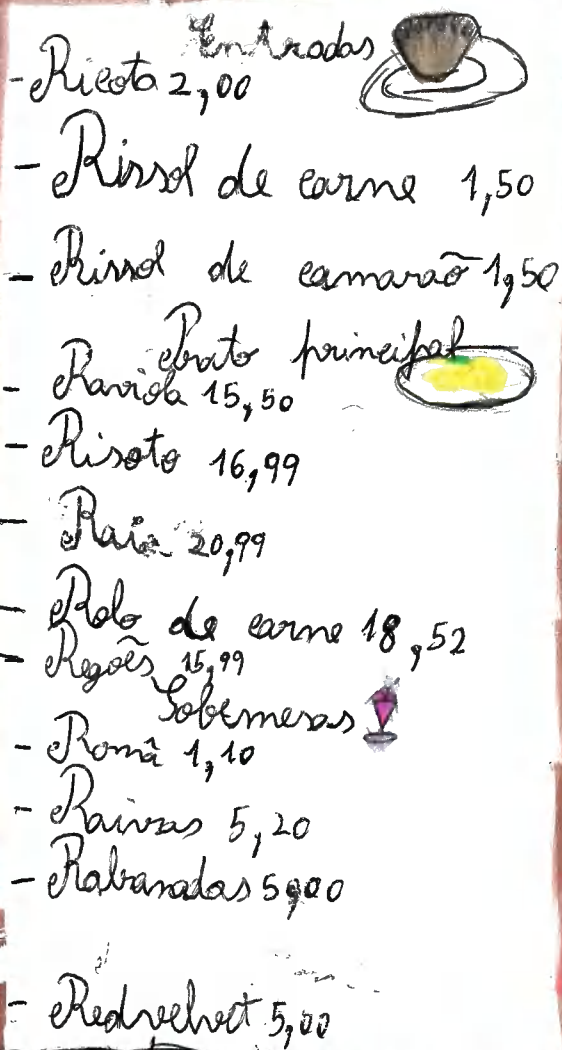 Entradas
- Ricota 2,00
- Rissol de carne 1,50
- Rissol de camarão 1,50
Prato principal
- Raviola 15,50
- Risoto 16,99
- Raia 20,99
- Rolo de carne 18,52
- Regões 15,99
Sobemesas
- Romã 1,10
- Raivas 5,20
- Rabanadas 5,00
- Redvelvet 5,00